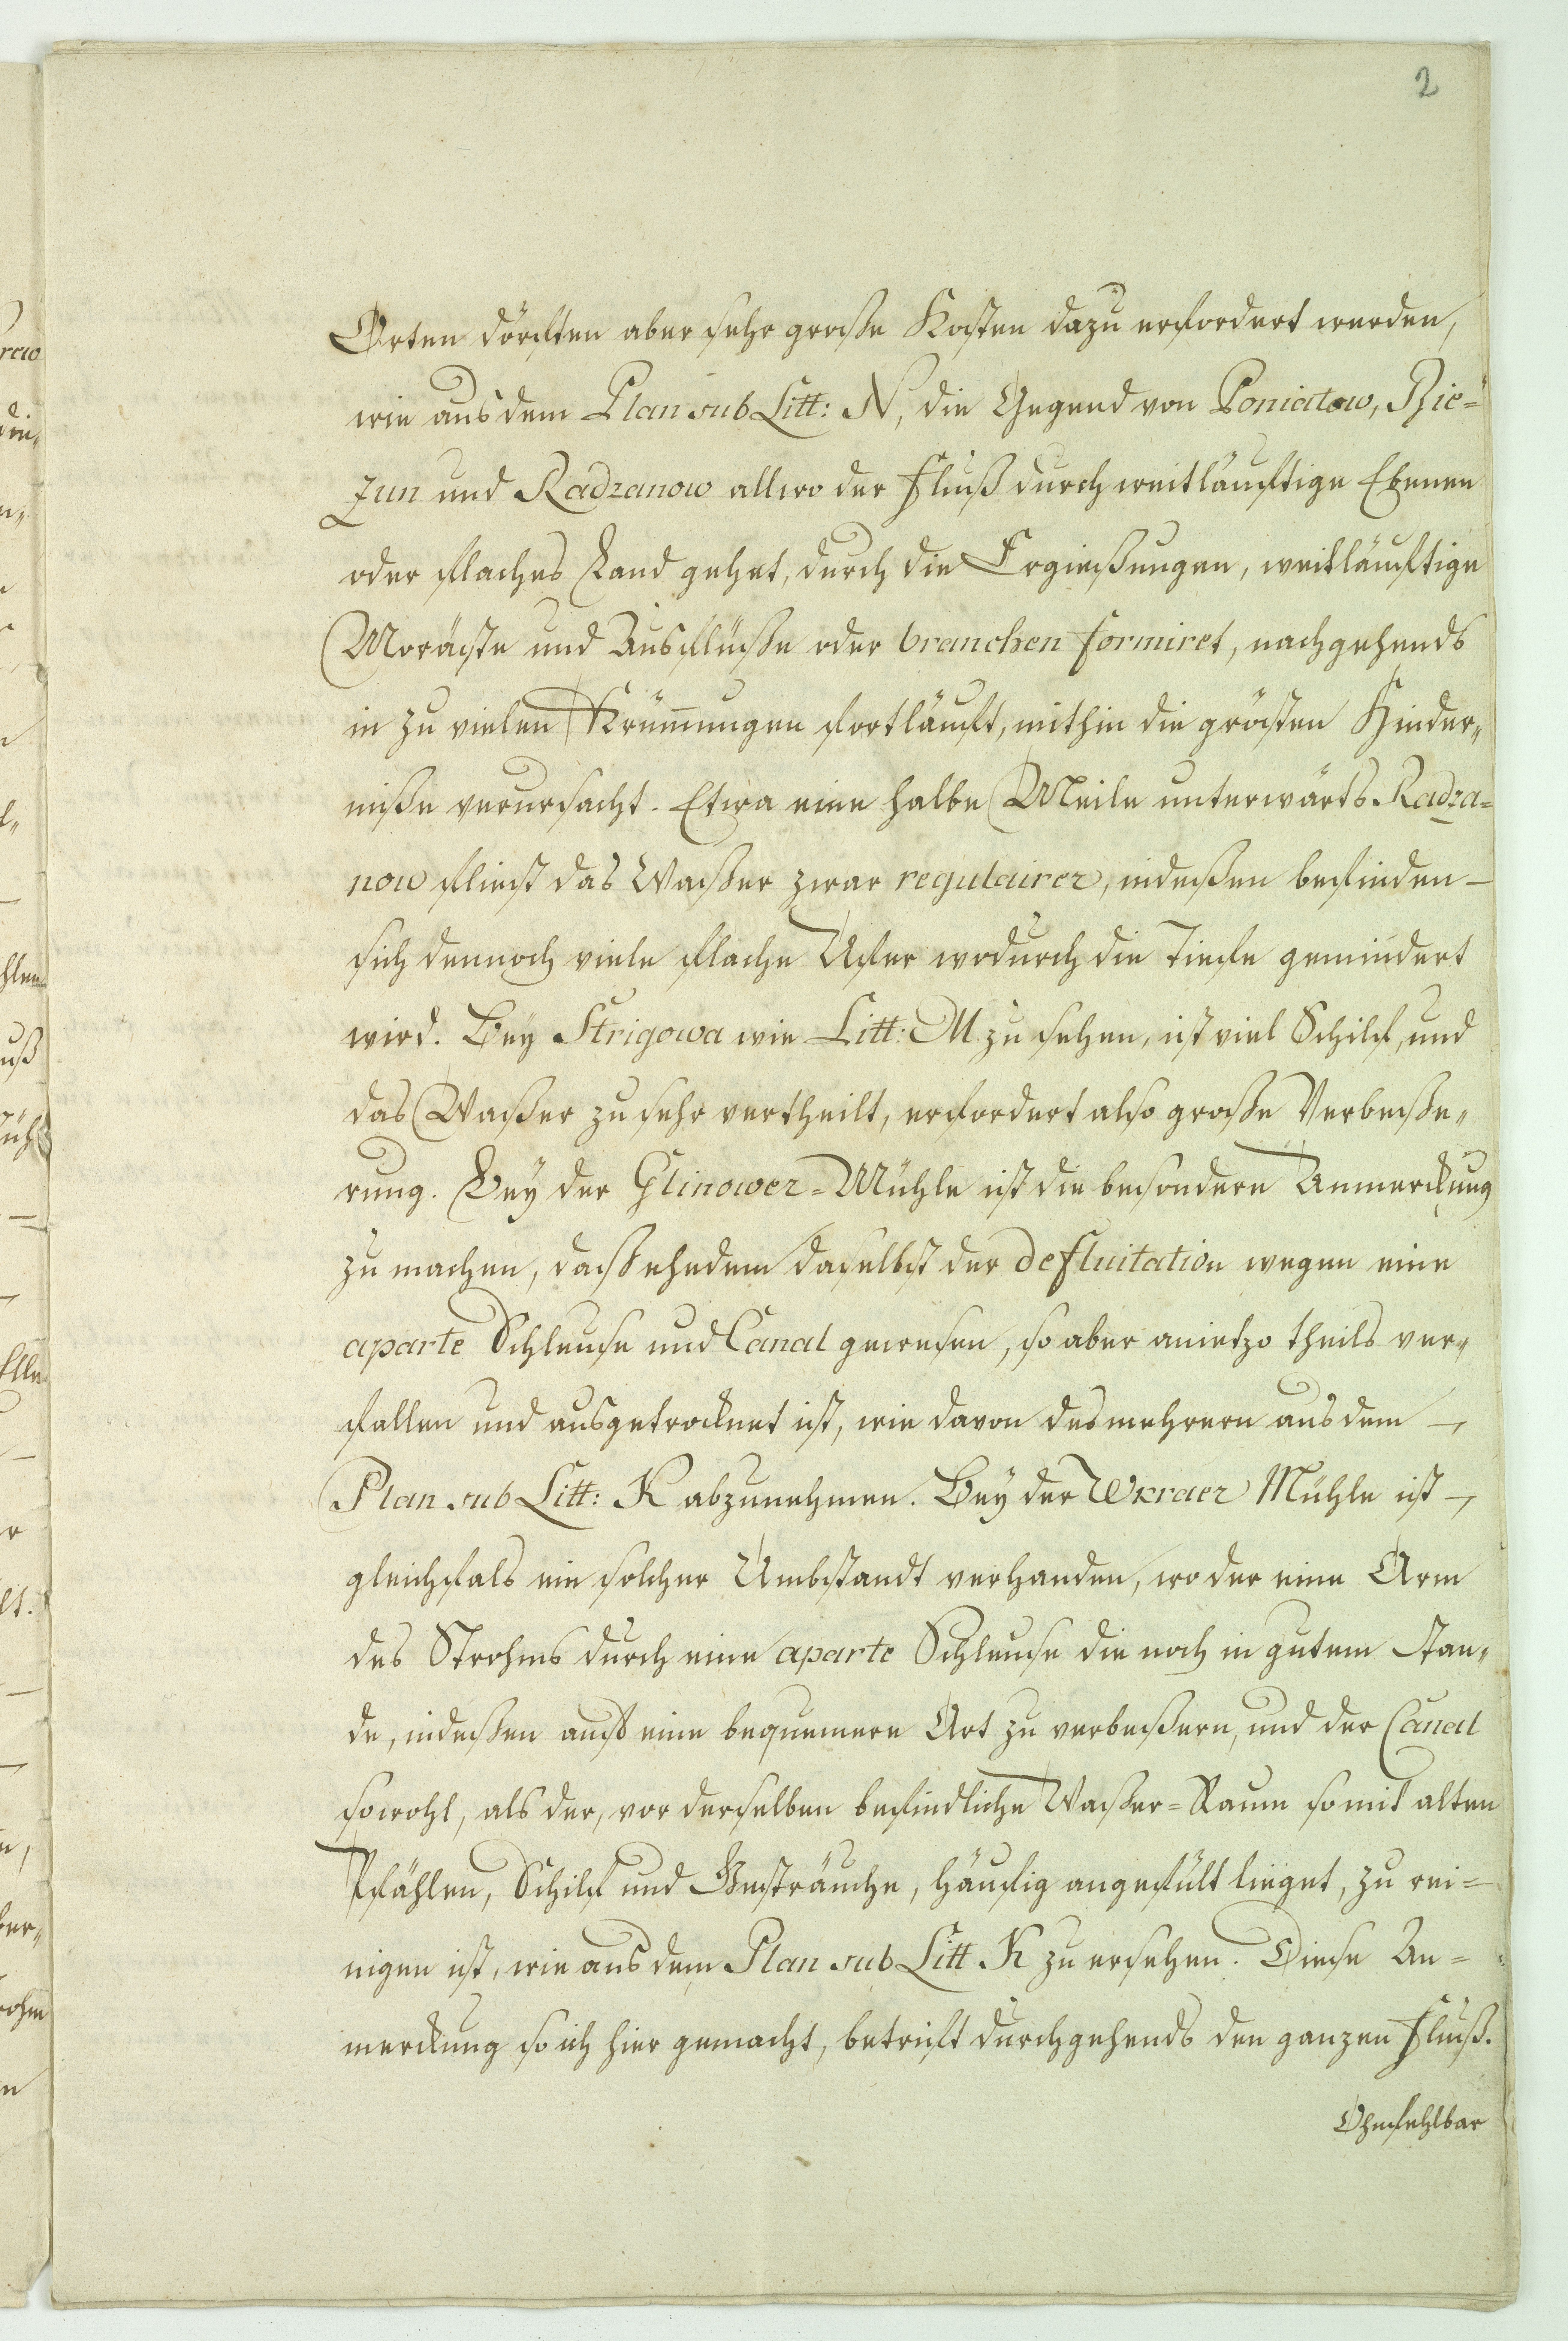 2
Orten dörften aber sehr große Kosten dazu erfordert werden,
wie aus dem Plan sub Litt: N, die Gegend von Poniatow, Bie=
zun und Radzanow allwo der Fluß durch weitläuftige Ebenen
oder flaches Land gehet, durch die Ergießungen, weitläuftige
Moräste und Ausflüße oder branchen formiret, nachgehends
in zu vielen Krüm̄ungen fortläuft, mithin die grösten Hinder„
niße verursacht. Etwa eine halbe Meile unterwärts Radza=
now fliest das Waßer zwar regulairer, indeßen befinden —
sich dennoch viele flache Ufer wodurch die Tiefe gemindert
wird. Bey Strigowa wie Litt: M zu sehen, ist viel Schilf, und
das Waßer zu sehr vertheilt, erfordert also große Verbeße„
rung. Bey der Glinower=Mühle ist die besondere Anmerckung
zu machen, daß ehedem daselbst der defluitation wegen eine
aparte Schleuse und Canal gewesen, so aber anietzo theils ver„
fallen und ausgetrocknet ist, wie davon des mehrern aus dem —
Plan sub Litt: K abzunehmen. Bey der Wkraer Mühle ist —
gleichfals ein solcher Umbstandt verhanden, wo der eine Arm
des Strohms durch eine aparte Schleuse die noch in gutem Stan„
de, indeßen auf eine bequemere Art zu verbeßern, und der Canal
sowohl, als der, vor derselben befindliche Waßer=Raum so mit alten
Pfählen, Schilf und Gesträuche, häufig angefült lieget, zu rei=
nigen ist, wie aus dem Plan sub Litt K zu ersehen. Diese An=
merckung so ich hier gemacht, betrift durchgehends den ganzen Fluß.
Ohnfehlbar